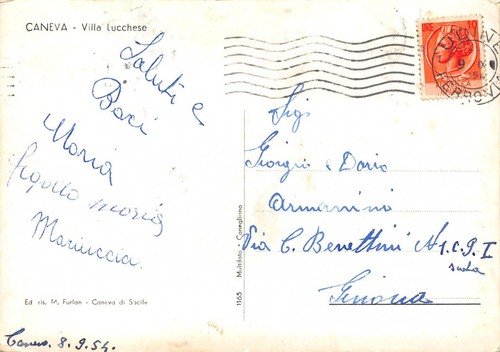 CANEVA - Villa Lucchese
Saluti e
Baci
Maria
Maria
Mariuccia
Ed. ris. M. Furlan - Caneva di Sacile
Caneva 8.9.54.
1165 Multifoto - Conegliano
LIRE 10
Sigg
Giorgio e Dario
Armanino
Via C. Benettini N 1 c. 9. I
scala
Genova